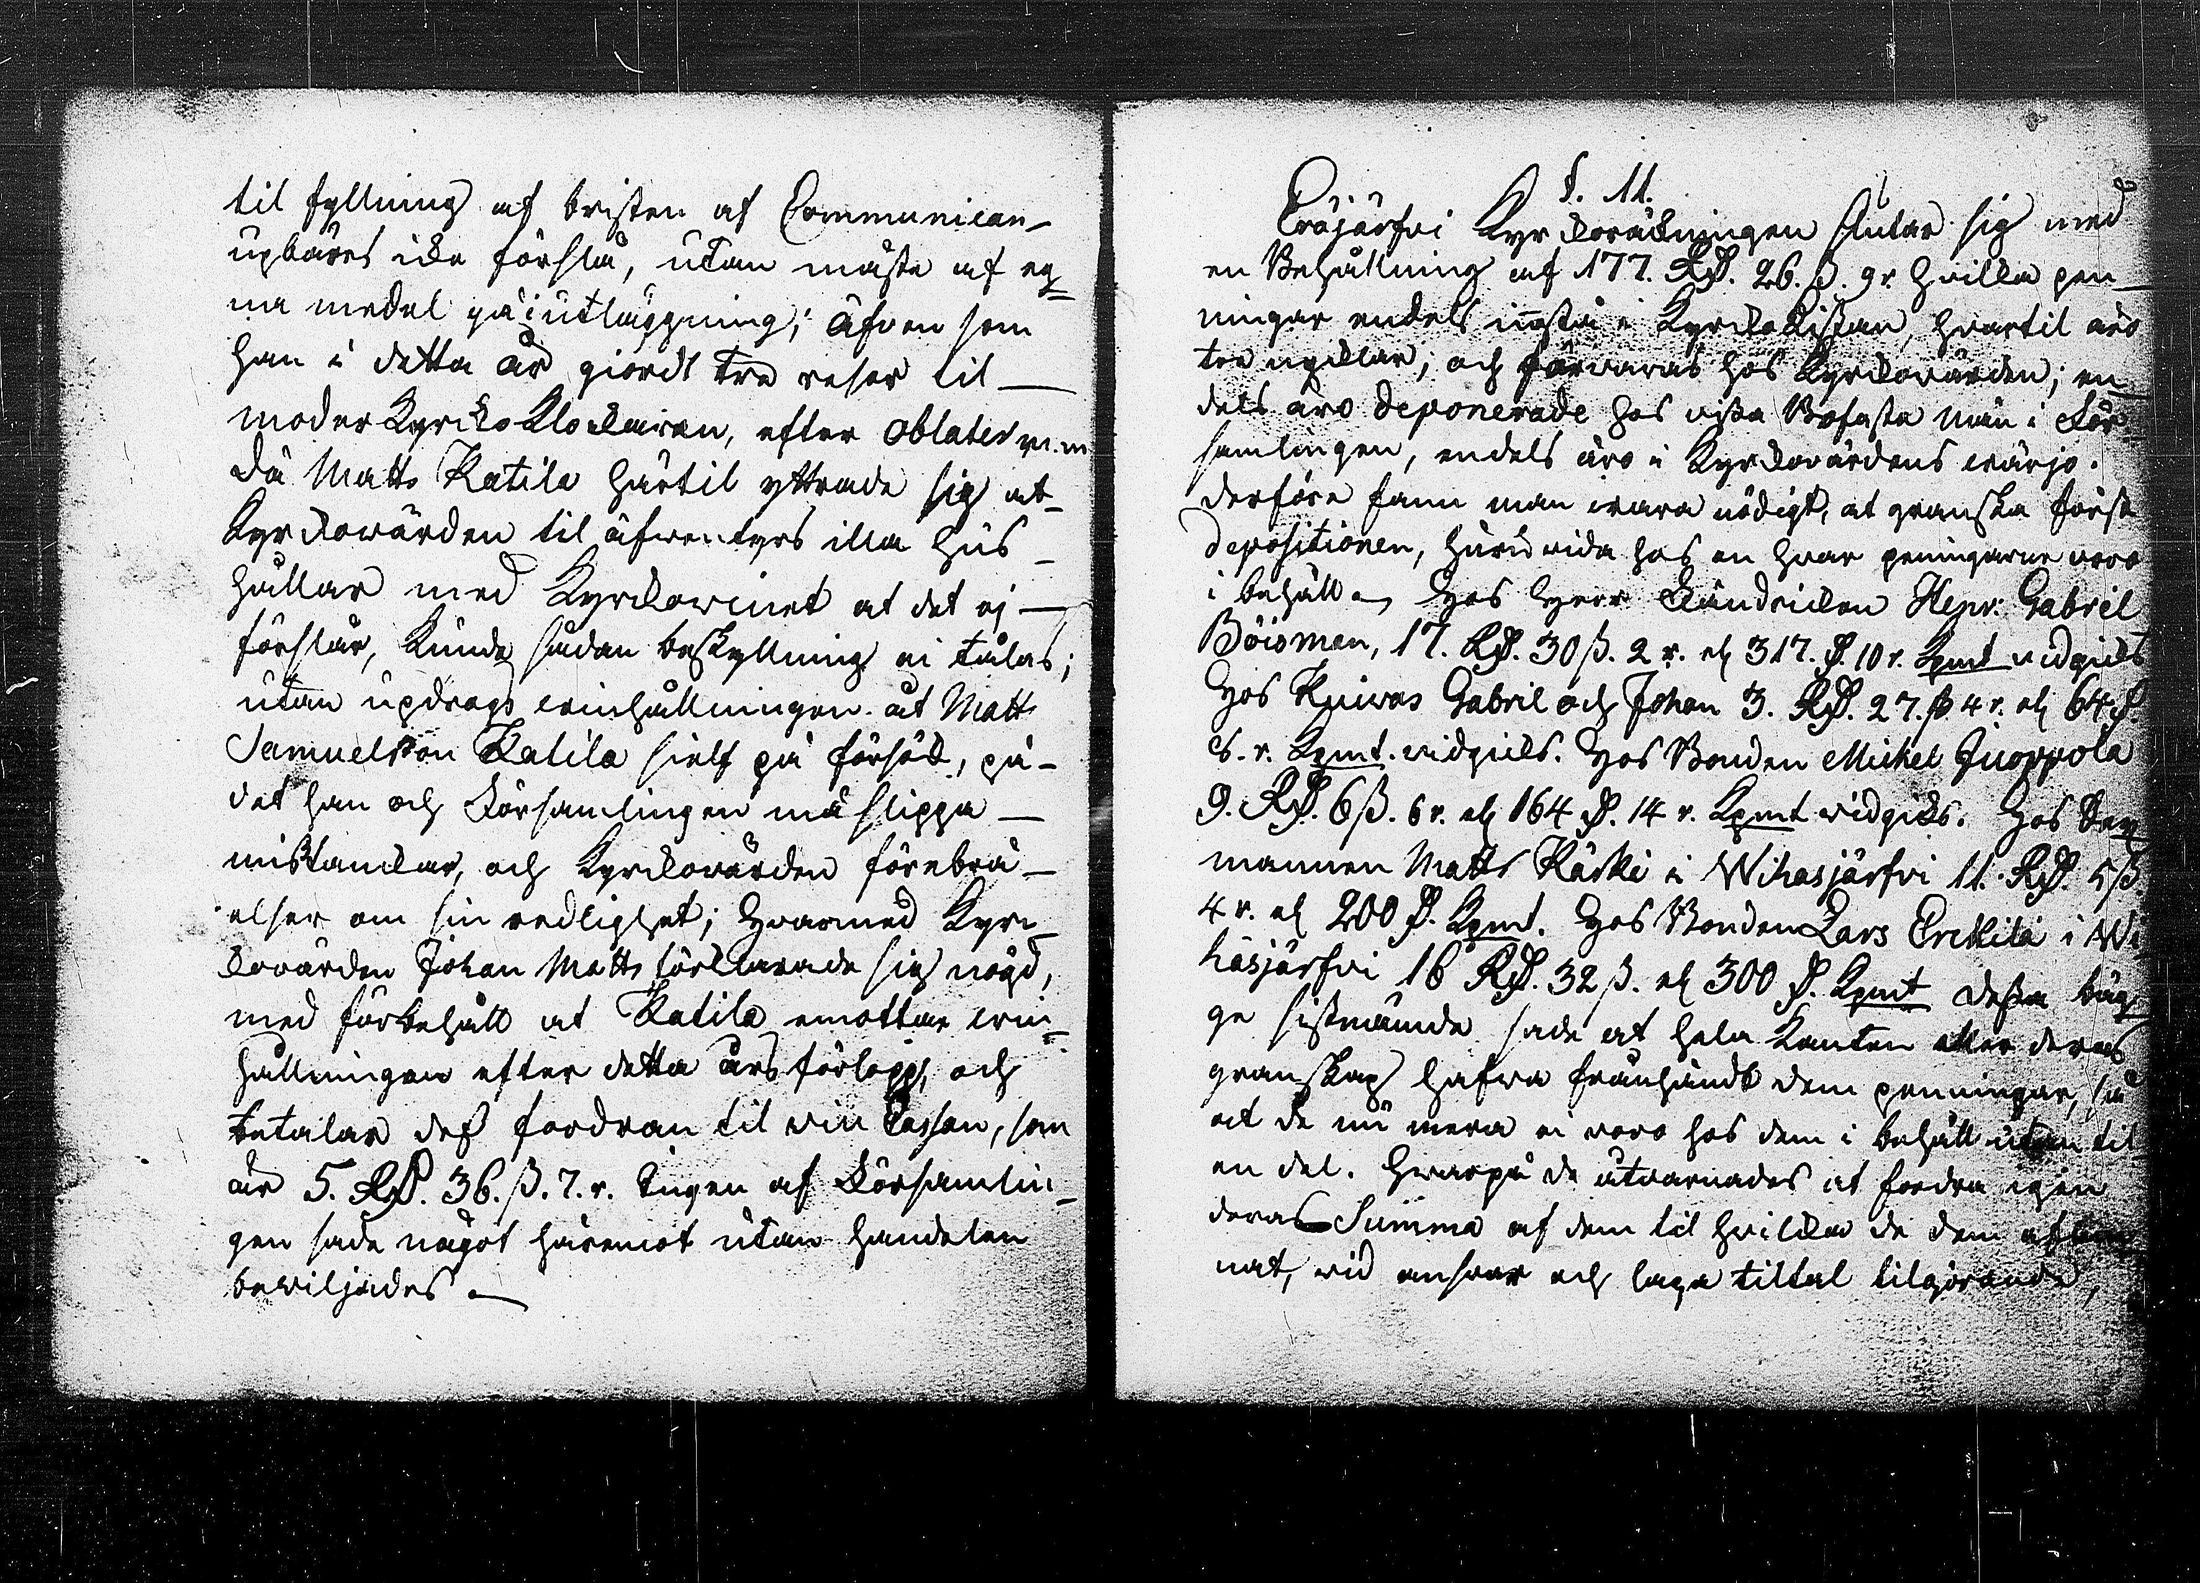 til fyllning af bristen af Communican-
upbäres icke förslå, utan måste af eg-
na medel gå i utläggning; äfven som
han i detta år giordt tre resor til
moderKyrckoKlockaren, efter oblater m.m
då Matts Katila härtil yttrade sig at
Kyrckowärden til äfwentyrs illa hus-
hållar med Kyrckowinet at det ej
förslår, kunde sådan beskyllning ei tålas;
utan updrogs winhållningen åt Matts
Samuelsson Katila sielf på försök, på-
det han och Församlingen må slippa
misstankar, och Kyrckowärden förebrå-
elser om sin redlighet; hvarmed Kyrc-
kowärden Johan Matts förklarade sig nögd,
med förbehåll at Katila emottar win-
hållningen efter detta års förlopp, och
betalar dess fordran til vin Cassan, som
är 5. RD. 36. ß. 7. r. Ingen af Församlin-
gen sade något häremot utan handelen
beviljades.
§. 11.
Eräjärfvi Kyrckoräkningen slutar sig med
en Behållning af 177. RD. 26. ß. 9 r. hvilka pen-
ningar endels ingå i Kyrckokistan, hvartil äro
tre nycklar, och förvaras hos Kyrckovärden; en-
dels äro deponerade hos vissa Bofasta män i För-
samlingen, endels äro i Kyrckovärdens wärjo.
derföre fann man wara nödigt, at granska först
depositionen, huruvida hos en hvar peningarne voro
i behåll. Hos Herr Fändricken Henr: Gabriel
Böisman, 17. RD. 30 ß. 2 r. elr 317. D. 10 r. Kpmt vidgicks
Hos Kuiwas Gabriel och Johan 3. RD. 27. ß. 4 r. elr 64 D.
6. r. Kpmt. vidgicks. Hos Bonden Michel Juoppola
9. RD. 6 ß. 6 r. elr 164 D. 14 r. Kpmt widgicks. Hos Sex-
mannen Matts Käski i Wihasjärfvi 11. RD. 5 ß
4 r. elr 200 D. Kpmt. Hos Bonden Lars Erckilä i Wi-
hasjärfvi 16 RD. 32 ß. elr 300 D. Kpmt dessa bäg-
ge sistnämde sade at hela Kanten eller deras
granskap hafva frånhändt dem penningar, så
at de nu mera ei voro hos dem i behåll utan til
en del. Hvarpå de åtvarnades at fordra igen
deras Summa af dem til hvilka de dem aflem-
nat, vid answar och laga tiltal tilgörande,